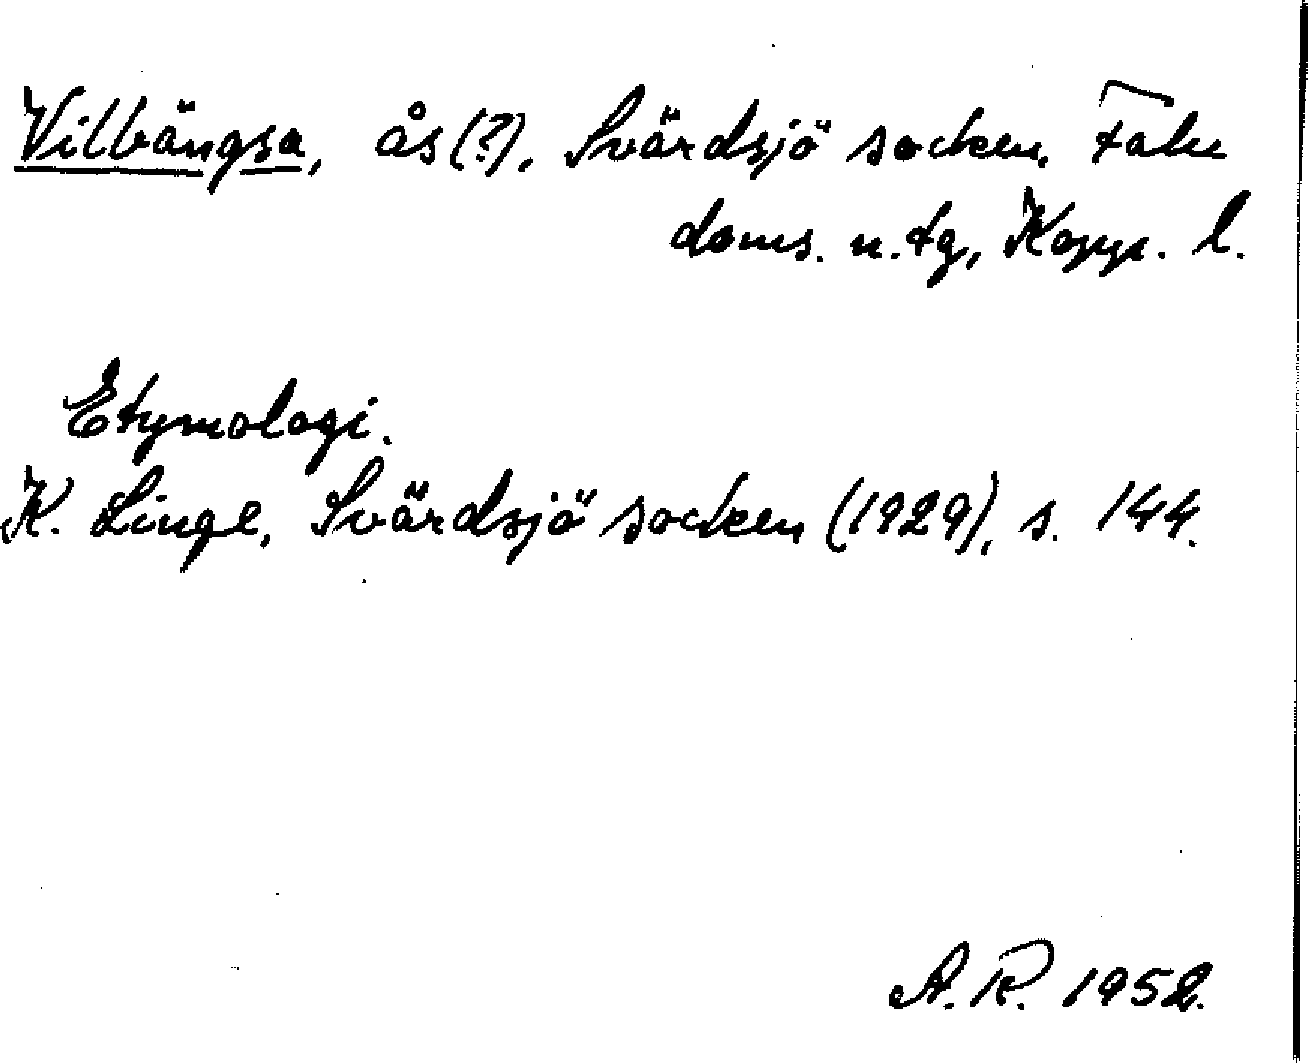 Vilbängsa, ås (?), Svärdsjö socken, Falu
doms. n. tg, Kopp. l.
Etymologi.
K. Linge, Svärdsjö socken (1929), s. 144.
A. R. 1952.